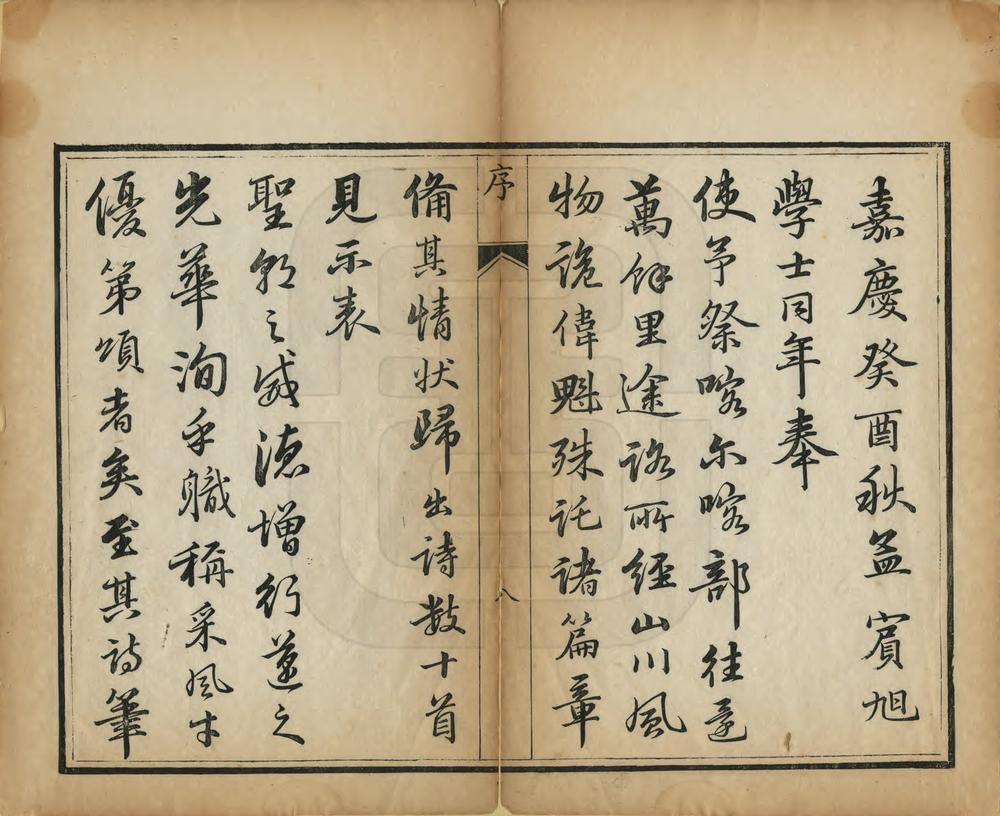 嘉慶癸酉秋孟賓旭
學士同年奉
使予祭喀尔喀部往還
萬餘里途路所經山川風
物詭偉魁殊託諸篇章
序
八
備其情狀歸出詩數十首
見示表
聖朝之威德增行邁之
光華洵乎職稱采風才
優第頌者矣至其詩筆